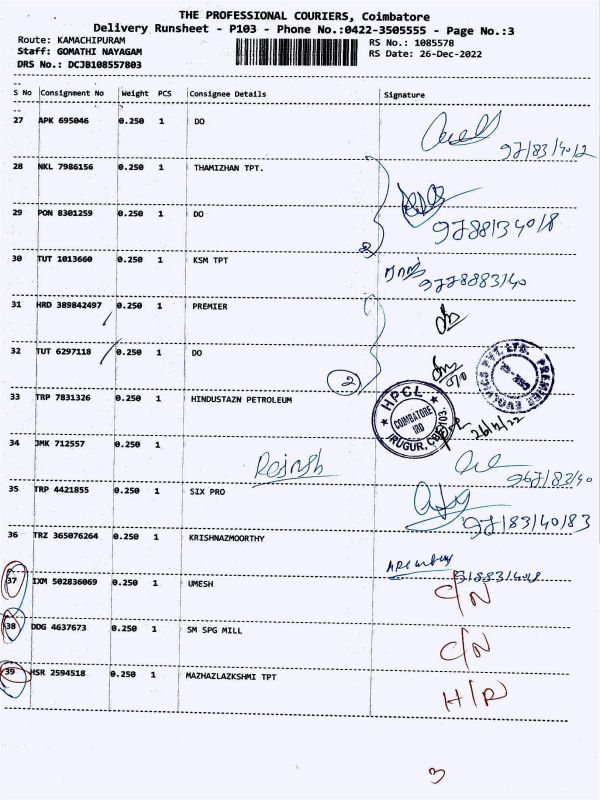 THE PROFESSIONAL COURIERS, Coimbatore
Delivery Runsheet - P103 - Phone No.:0422-3505555 - Page No.:3
Route: KAMACHIPURAM
RS No.: 1085578
Staff: GOMATHI NAYAGAM
RS Date: 26-Dec-2022
DRS No.: DCJB108557803
S No Consignment No Weight PCS Consignee Details Signature
27 APK 695046 0.250 1 DO
28 NKL 7986156 0.250 1 THAMIZHAN TPT.
29 PON 8301259 0.250 1 DO
30 TUT 1013660 0.250 1 KSM TPT
31 HRD 389842497 0.250 1 PREMIER
32 TUT 6297118 0.250 1 DO
2
33 TRP 7831326 0.250 1 HINDUSTAZN PETROLEUM
HPCL
COIMBATORE
IRD
IRUGUR, CBE-103.
PREMIER EVOLVICS PVT. LTD.
26/12/22
34 JMK 712557 0.250 1
Rajnsh
35 TRP 4421855 0.250 1 SIX PRO
97/83/40/83
36 TRZ 365076264 0.250 1 KRISHNAZMOORTHY
37 IXM 502836069 0.250 1 UMESH C/N
38 DDG 4637673 0.250 1 SM SPG MILL C/N
39 HSR 2594518 0.250 1 MAZHAZLAZKSHMI TPT H/R
3